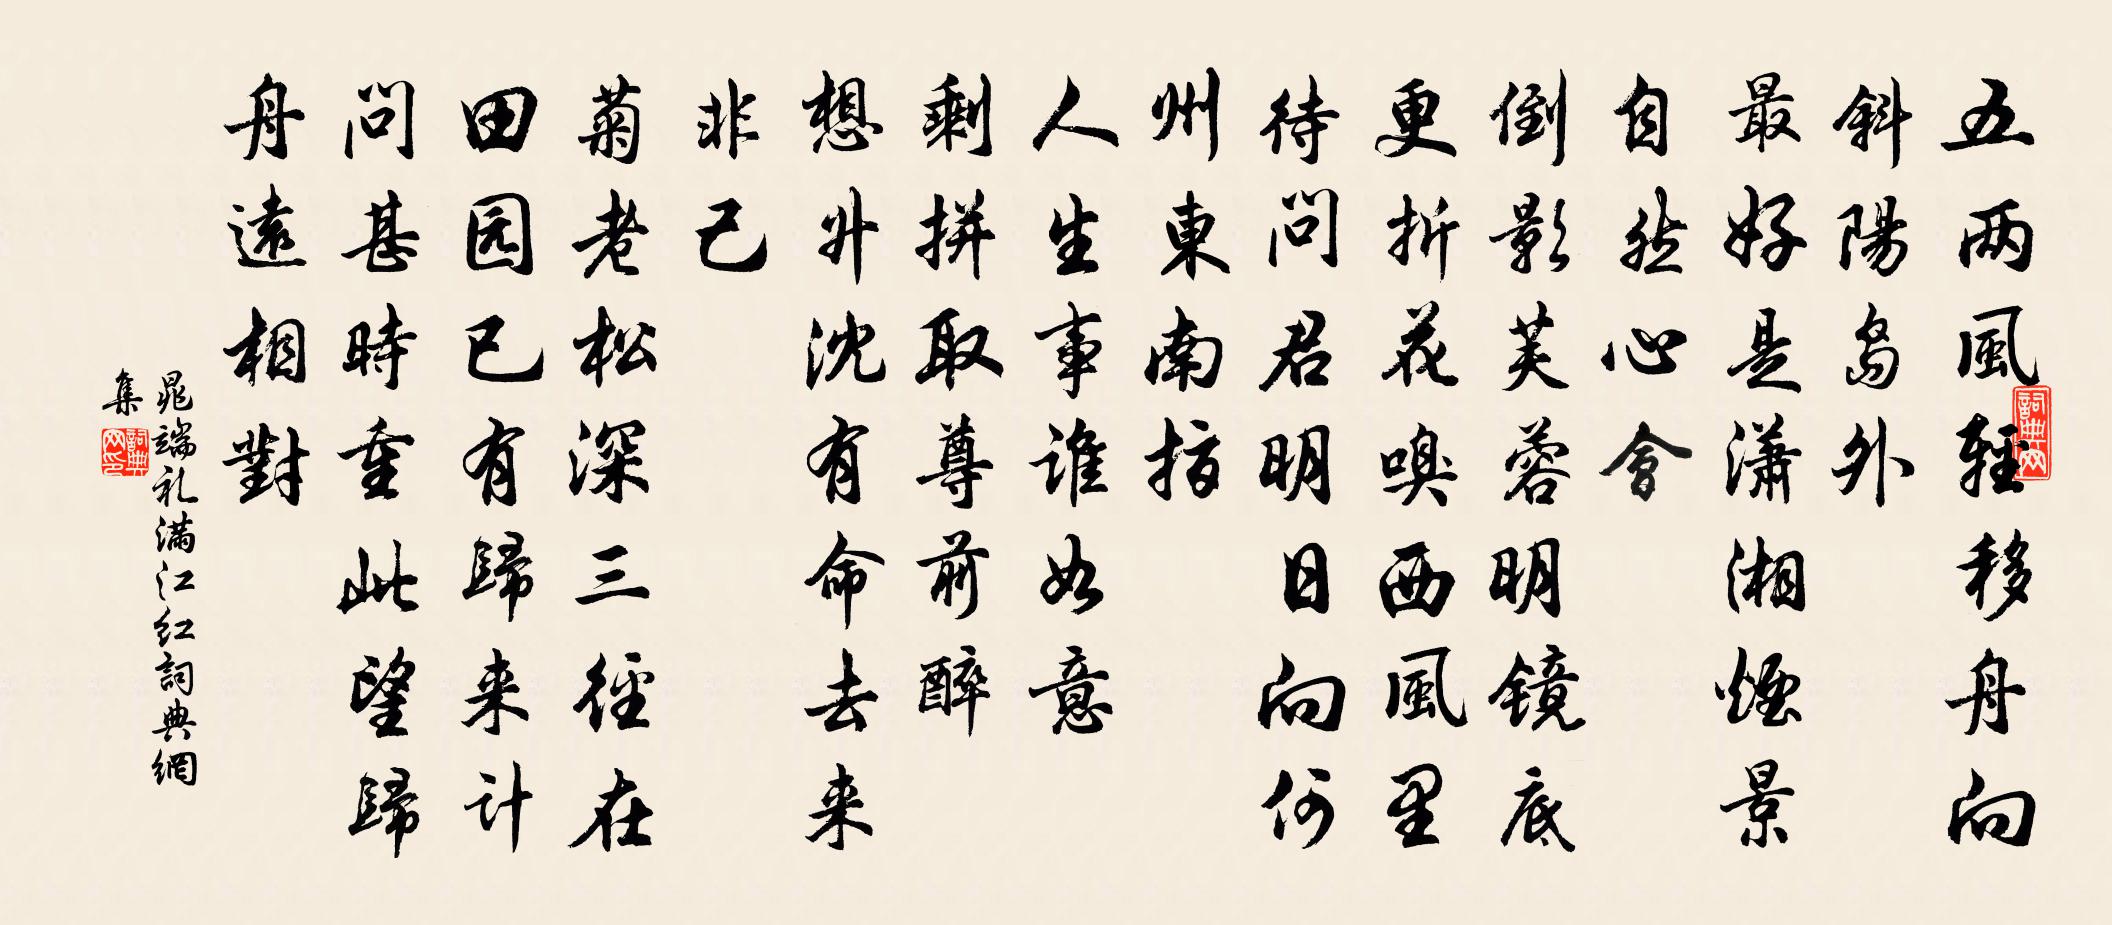 五两風輕移舟向
斜陽島外
最好是潇湘煙景
自然心會
倒影芙蓉明镜底
更折花嗅西風里
待問君明日向何
州東南指
人生事谁如意
剩拼取尊前醉
想升沈有命去来
非己
菊老松深三徑在
田园已有歸来計
問甚時重此望歸
舟遠相對
晁端礼满江红詞典網
集
詞典网
詞典网印